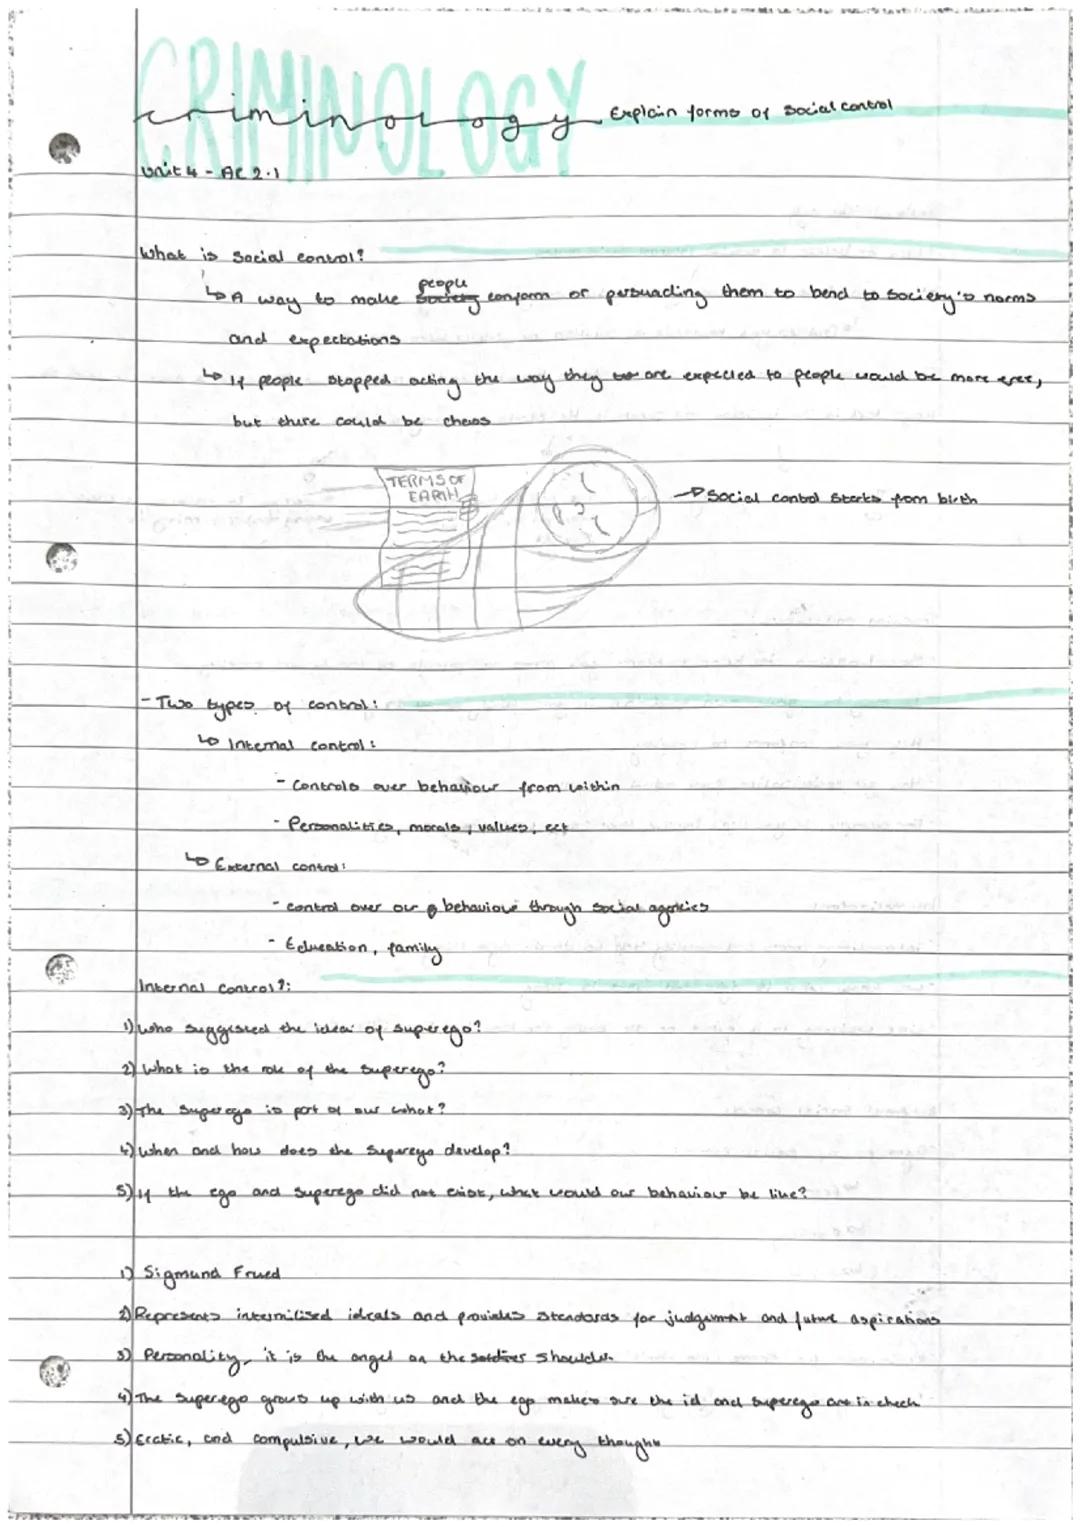 CRIMINOLOGY
criminology Explain forms of social control
Unit 4 - AC 2.1
What is social control?
↳ A way to make people society conform or persuading them to bend to society's norms
and expectations
↳ If people stopped acting the way they are expected to people would be more free,
but there could be chaos
TERMS OF
EARTH
→ Social control starts from birth
- Two types of control:
↳ Internal control:
- Controls over behaviour from within
- Personalities, morals, values, ect
↳ External control:
- control over our behaviour through social agencies
- Education, family
Internal control?:
1) Who suggested the idea of superego?
2) What is the role of the superego?
3) The superego is part of our what?
4) When and how does the superego develop?
5) If the ego and superego did not exist, what would our behaviour be like?
1) Sigmund Frued
2) Represents internilised ideals and provides standards for judgement and future aspirations
3) Personality, it is the angel on the shoulder
4) The superego grows up with us and the ego makes sure the id and superego are in check
5) Eratic, and compulsive, we would act on every thought